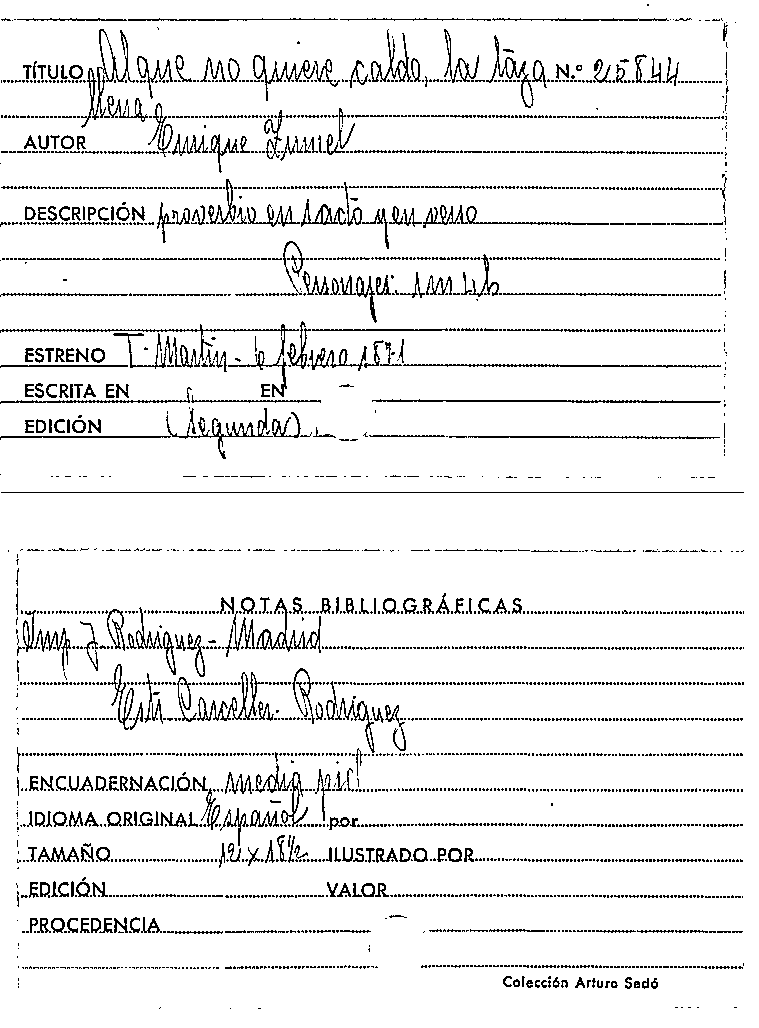 TÍTULO Al que no quiere caldo, la taza N.º 25844
llena
AUTOR Enrique Zumel
DESCRIPCIÓN proverbio en 1 acto y en verso
Personajes: 1m 4h
ESTRENO T. Martín - 6 febrero 1871
ESCRITA EN EN
EDICIÓN (Segunda).
NOTAS BIBLIOGRÁFICAS
Imp J Rodriguez - Madrid
Carceller - Rodriguez
ENCUADERNACIÓN media piel
IDIOMA ORIGINAL Español por
TAMAÑO 12 x 18½ ILUSTRADO POR
EDICIÓN VALOR
PROCEDENCIA
Colección Arturo Sedó